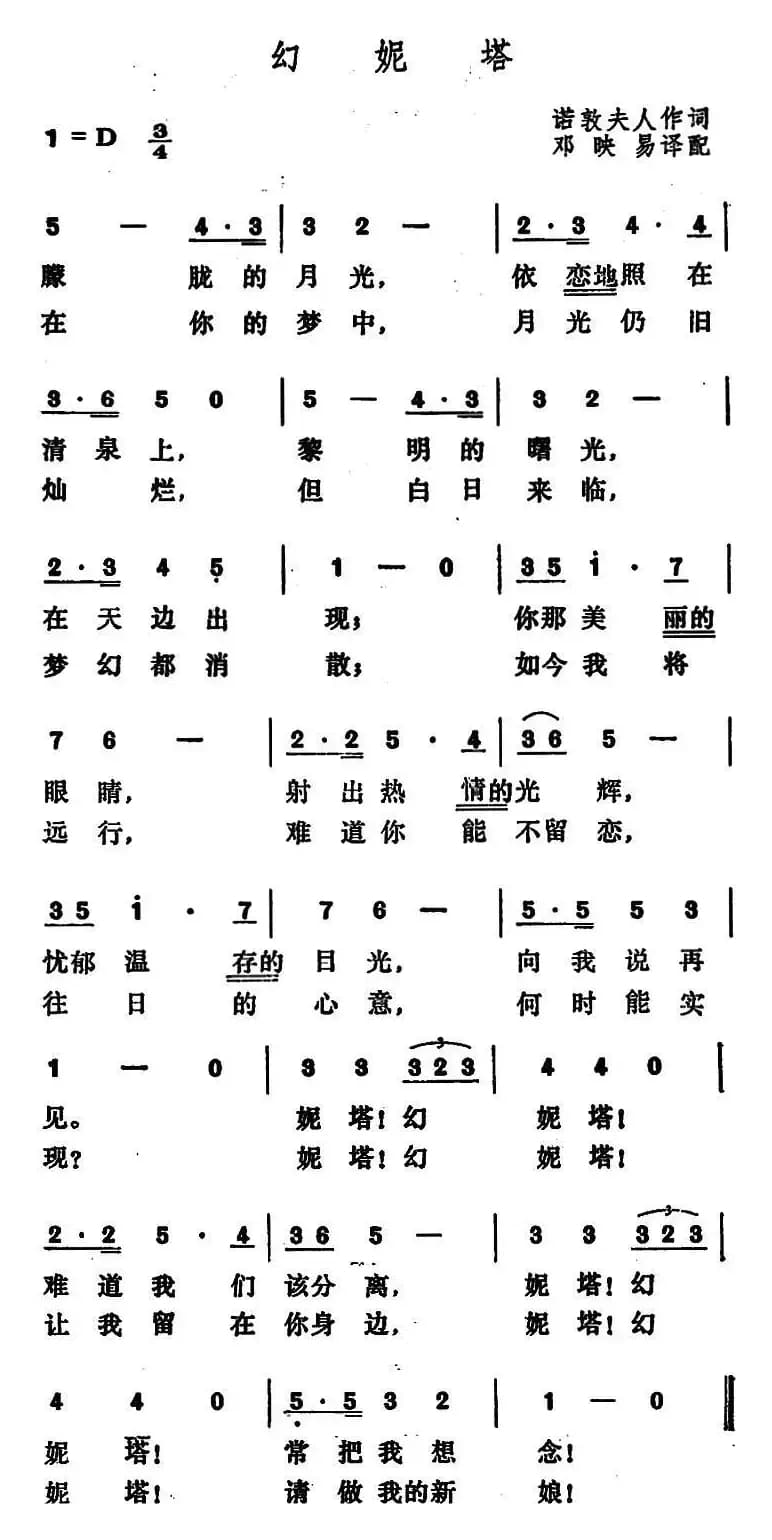 幻妮塔
1=D 3/4
诺敦夫人作词
邓映易译配
5 — 4·3 | 3 2 — | 2·3 4·4 |
朦胧的月光，依恋地照在
在你的梦中，月光仍旧
3·6 5 0 | 5 — 4·3 | 3 2 — |
清泉上，黎明的曙光，
灿烂，但白日来临，
2·3 4 5̣ | 1 — 0 | 35 1̇·7 |
在天边出现；你那美丽的
梦幻都消散；如今我将
7 6 — | 2·2 5·4 | 36 5 — |
眼睛，射出热情的光辉，
远行，难道你能不留恋，
35 1̇·7 | 7 6 — | 5·5 5 3 |
忧郁温存的目光，向我说再
往日的心意，何时能实
3 3
1 — 0 | 3 3 323 | 4 4 0 |
见。妮塔！幻妮塔！
现？妮塔！幻妮塔！
3
2·2 5·4 | 36 5 — | 3 3 323 |
难道我们该分离，妮塔！幻
让我留在你身边，妮塔！幻
4 4 0 | 5̣·5 3 2 | 1 — 0 ‖
妮塔！常把我想念！
妮塔！请做我的新娘！